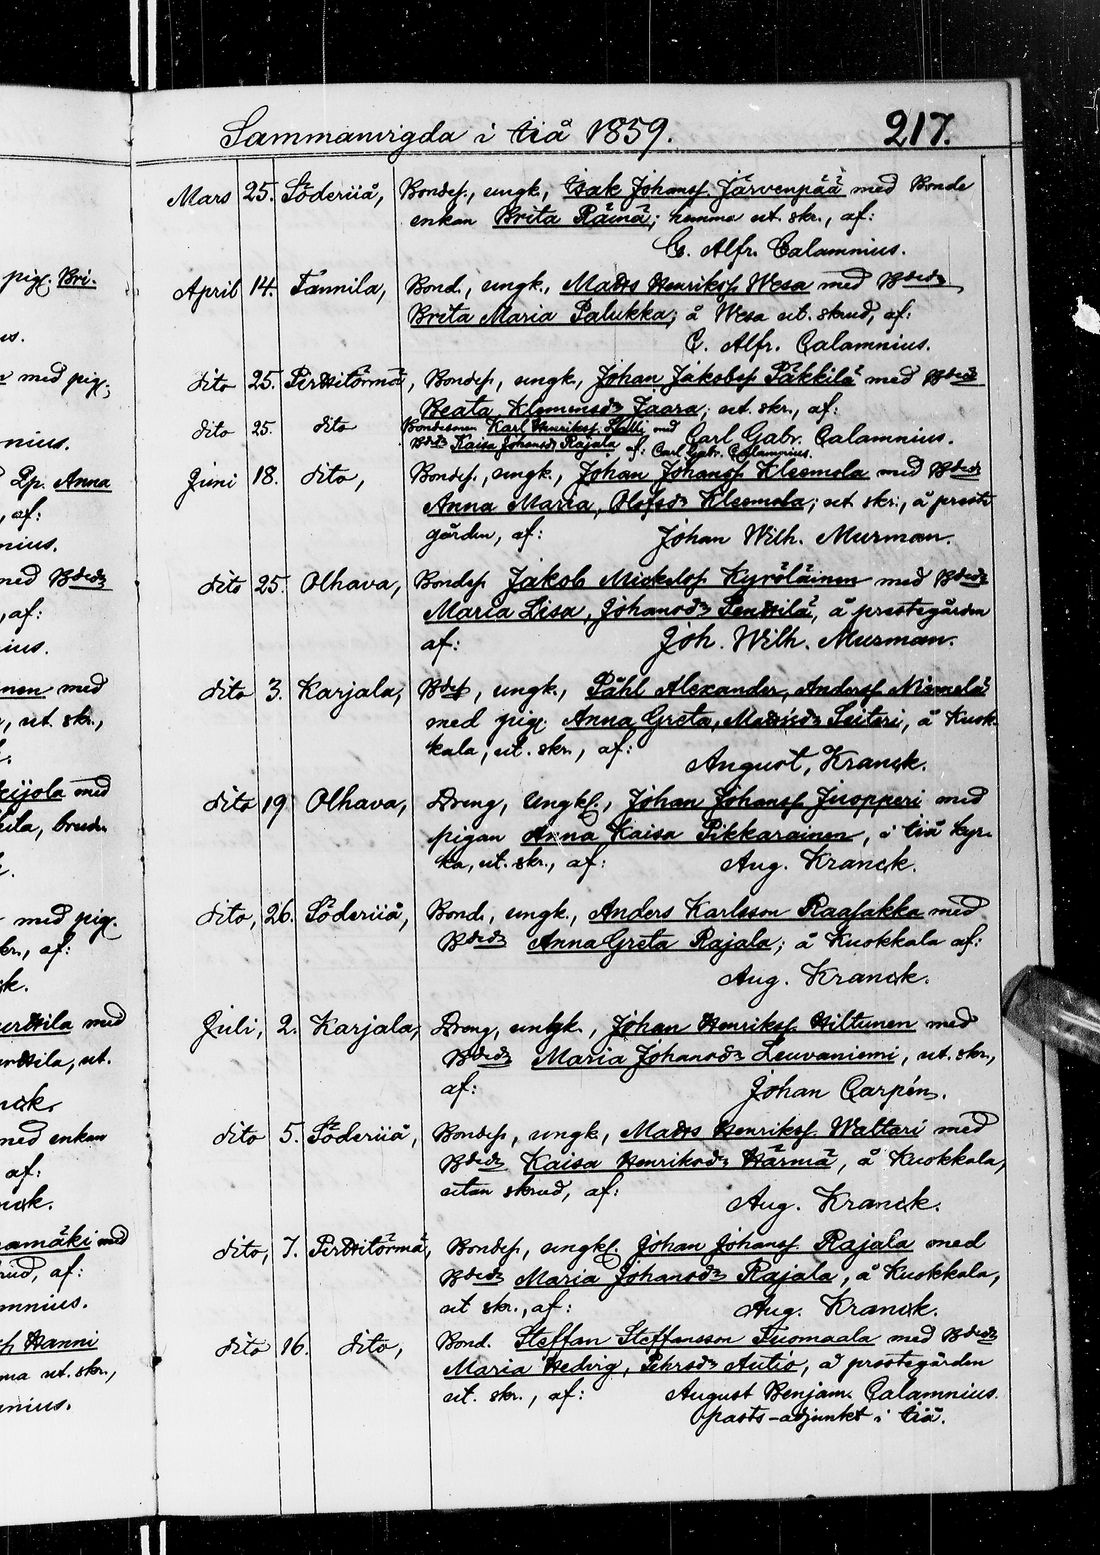 Sammanvigda i Iiå 1859. 217.
Mars 25. Söderiiå, Bondes., ungk., Isak Johans s. Järvenpää med Bonde
enkan Brita Rämä; hemma ut. skr., af:
C. Alfr. Calamnius.
April 14. Tannila, Bond., ungk., Matts Henriks s. Wesa med Bdedr
Brita Maria Palukka; å Wesa ut. skrud, af:
C. Alfr. Calamnius.
dito 25. Perttitörmä, Bondes., ungk., Johan Jakobs s. Päkkilä med Bdedr
Beata Klemensdr Jaara; ut. skr., af:
Carl Gabr. Calamnius.
dito 25. dito Bondesonen Karl Henriks s. med
Bdedr Kaisa Johansdr Rajala af: Carl Gabr. Calamnius.
Juni 18. dito, Bondes., ungk., Johan Johans s. Kleemola med Bdedr
Anna Maria, Olofsdr Kleemola; ut skr., å prest-
gården, af: Johan Wilh. Murman.
dito 25. Olhava, Bondes. Jakob Mickels s. Kyröläinen med Bdedr
Maria Lisa, Johansdr Penttilä, å prestegården
af: Joh. Wilh. Murman.
dito 3. Karjala, Bds., ungk., Påhl Alexander, Anders s. Niemelä
med pig. Anna Greta, Mattsdr Seitari, å Kuok-
kala, ut. skr., af:
August, Kranck.
dito 19 Olhava, Dreng, Ungkl., Johan Johans s. Juopperi med
pigan Anna Kaisa Pikkarainen, i Iiå kyr-
ka, ut. skr., af: Aug. Kranck.
dito, 26. Söderiiå, Bond., ungk., Anders Karlsson Raasakka med
Bdedr Anna Greta Rajala; å Kuokkala af:
Aug. Kranck.
Juli, 2. Karjala, Dreng, ungk., Johan Henriks s. Hiltunen med
Bdedr Maria Johansdr Leuvaniemi, ut. skr.,
af: Johan Carpén.
dito 5. Söderiiå, Bondes, ungk., Matts Henriks s. Waltari med
Bdedr Kaisa Henriksdr Härmä, å Kuokkala,
utan skrud, af: Aug. Kranck.
dito, 7. Perttitörmä, Bondes, ungkl. Johan Johans s. Rajala med
Bdedr Maria Johansdr Rajala, å Kuokkala,
ut skr., af: Aug. Kranck.
dito 16. dito, Bond. Steffan Steffansson Tuomaala med Bdedr
Maria Hedvig, Pehrsdr Autio, å prestegården
ut. skr., af: August Benjam. Calamnius.
pasts-adjunkt i Iiå.